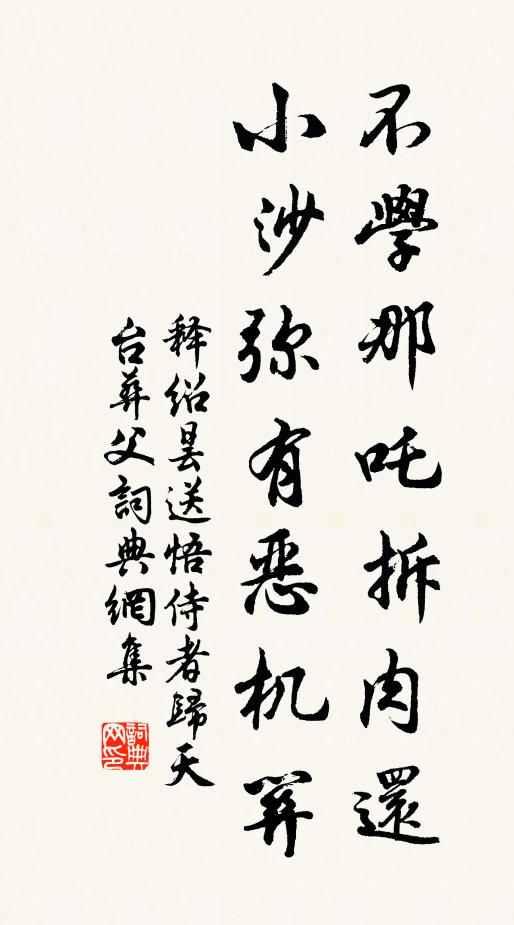 不學那吒拆肉還
小沙弥有恶机關
释绍昙送悟侍者歸天
台葬父詞典網集
詞典
网印